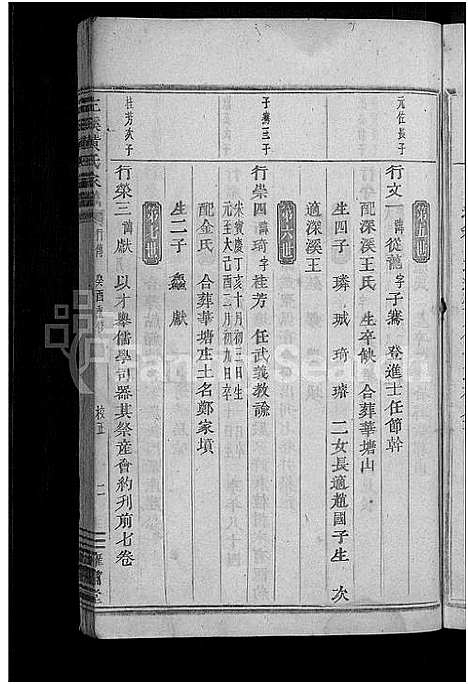 元仕長子
第五世
行文一 諱從龍字子騫 登進士任節幹
配深溪王氏 生卒缺 合葬華塘山
生四子 璘 珹 琦 璿 二女長適趙國子生 次
適深溪王
子騫三子
第六世
行榮四 諱琦字桂芳 任武義教諭
宋寶慶丁亥十月初三日生
元至大己酉三月初九日卒
配金氏 合葬華塘庄土名鄭家墳
生二子 蠡 獻
桂芳次子
第七世
行榮三 諱獻 以才舉儒學司器其祭產會約刊前七卷